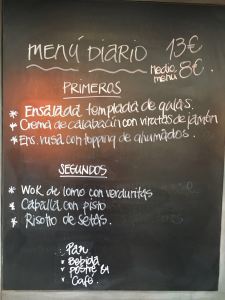 MENÚ DIARIO 13€
Medio menú 8€.
PRIMEROS
* Ensalada templada de gulas.
* Crema de calabacín con virutas de jamón
* Ens. rusa con topping de ahumados.
SEGUNDOS
* Wok de lomo con verduritas
* Caballa con pisto
* Risotto de setas.
* Pan
* Bebida
* Postre ó
* Café.